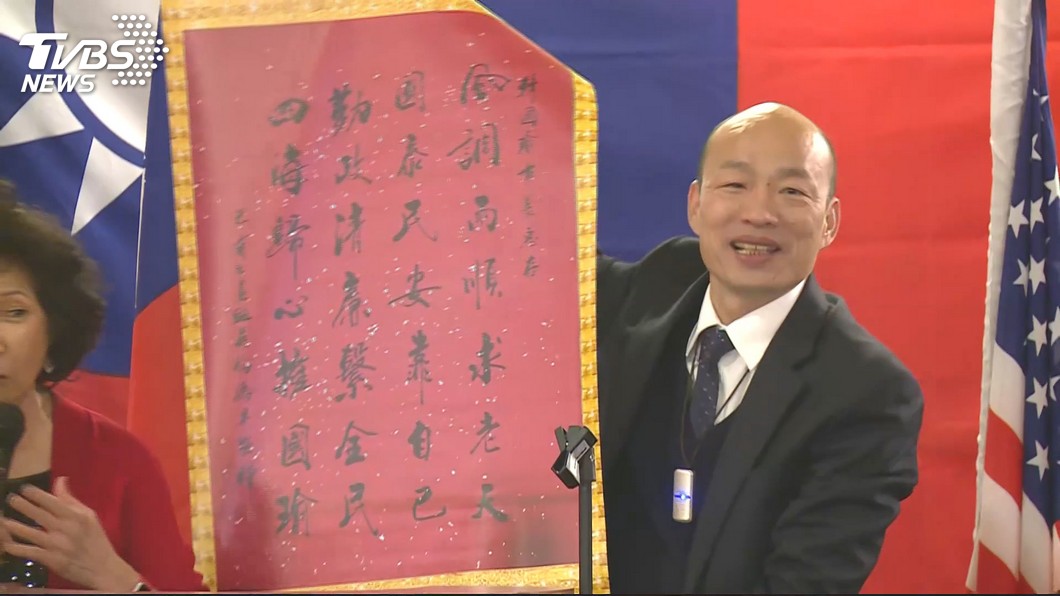 TVBS
NEWS
韓國瑜市長惠存
風調雨順求老天
國泰民安靠自己
勤政清廉繫全民
四海歸心擁國瑜